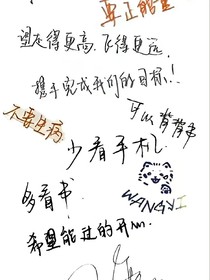 要正能量
望走得更高飞得更远
携手完成我们的目标!!
可以背背书
不要生病
少看手机
WANGYI
多看书
希望能过的开心